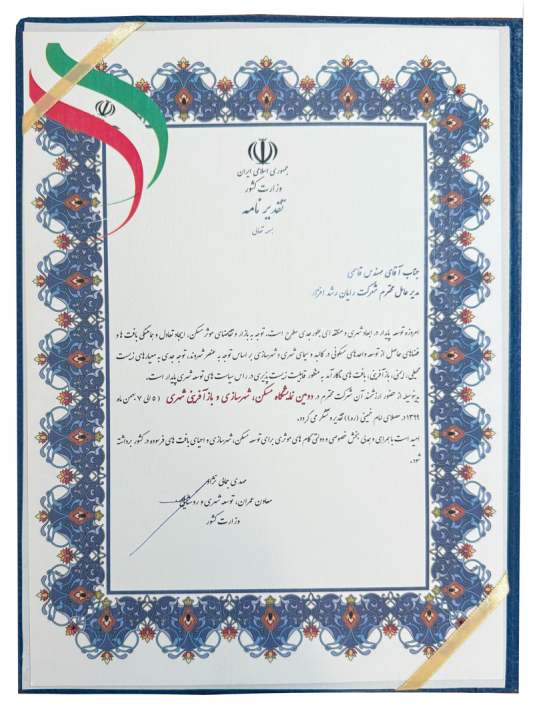 جمهوری اسلامی ایران
وزارت کشور
تقدیر نامه
بسمه تعالی
جناب آقای مهندس قاسمی
مدیر عامل محترم شرکت رایان رشد افزار
امروزه توسعه پایدار در ابعاد شهری و منطقه ای بطور جدی مطرح است. توجه به بازار و تقاضای موثر مسکن، ایجاد تعادل و هماهنگی بافت ها و
فضاهای حاصل از توسعه واحدهای مسکونی در کالبد و سیمای شهری و شهرسازی بر اساس توجه به عنصر شهروند، توجه جدی به معیارهای زیست
محیطی، ایمنی، بازآفرینی، بافت های ناکارآمد به منظور قابلیت زیست پذیری در راس سیاست های توسعه شهری پایدار است.
بدینوسیله از حضور ارزشمند آن شرکت محترم در دومین نمایشگاه مسکن، شهرسازی و بازآفرینی شهری (۵ الی ۷ بهمن ماه
۱۳۹۹ در مصلای امام خمینی (ره)) تقدیر و تشکر می گردد.
امید است با همراهی و همدلی بخش خصوصی و دولتی گام های موثری برای توسعه مسکن، شهرسازی و احیای بافت های فرسوده در کشور برداشته
شود.
مهدی جمالی نژاد
معاون عمران، توسعه شهری و روستایی
وزارت کشور